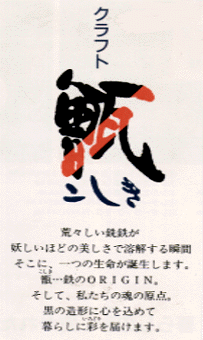 クラフト
甑
こしき
荒々しい銑鉄が
妖しいほどの美しさで溶解する瞬間
そこに、一つの生命が誕生します。
こしき
甑…鉄のORIGIN。
そして、私たちの魂の原点。
黒の造形に心を込めて
いろどり
暮らしに彩を届けます。